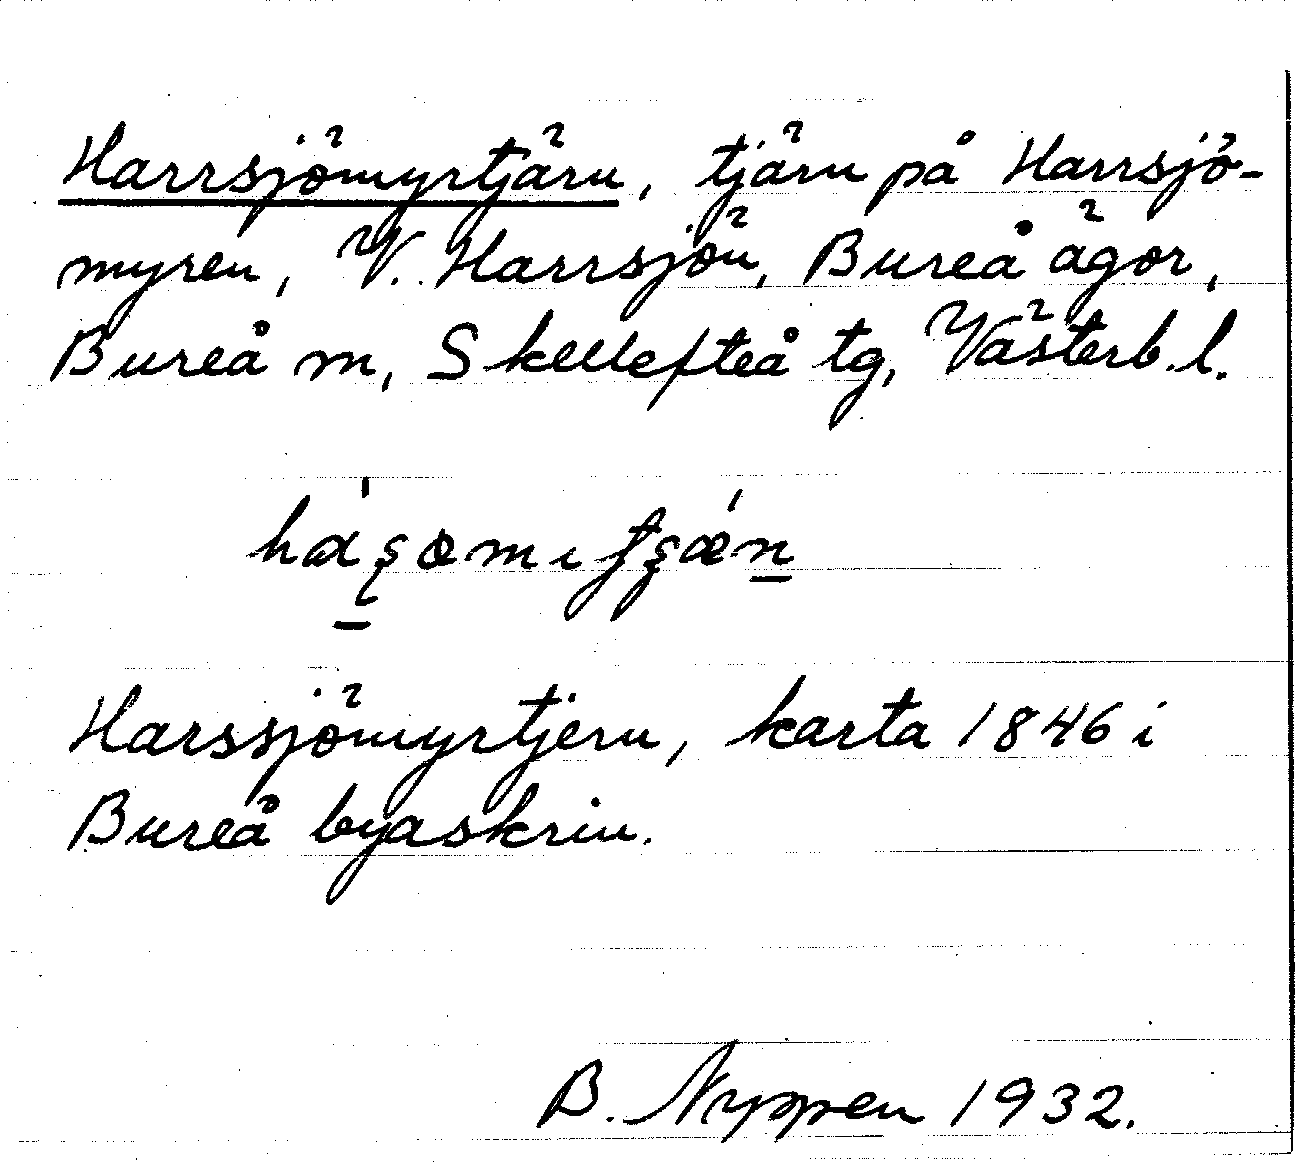 Harrsjömyrtjärn, tjärn på Harrsjö-
myren, V. Harrsjön, Bureå ägor,
Bureå m, Skellefteå tg, Västerb. l.
Harssjömyrtjern, karta 1846 i
Bureå byaskrin.
B. Nyppen 1932.